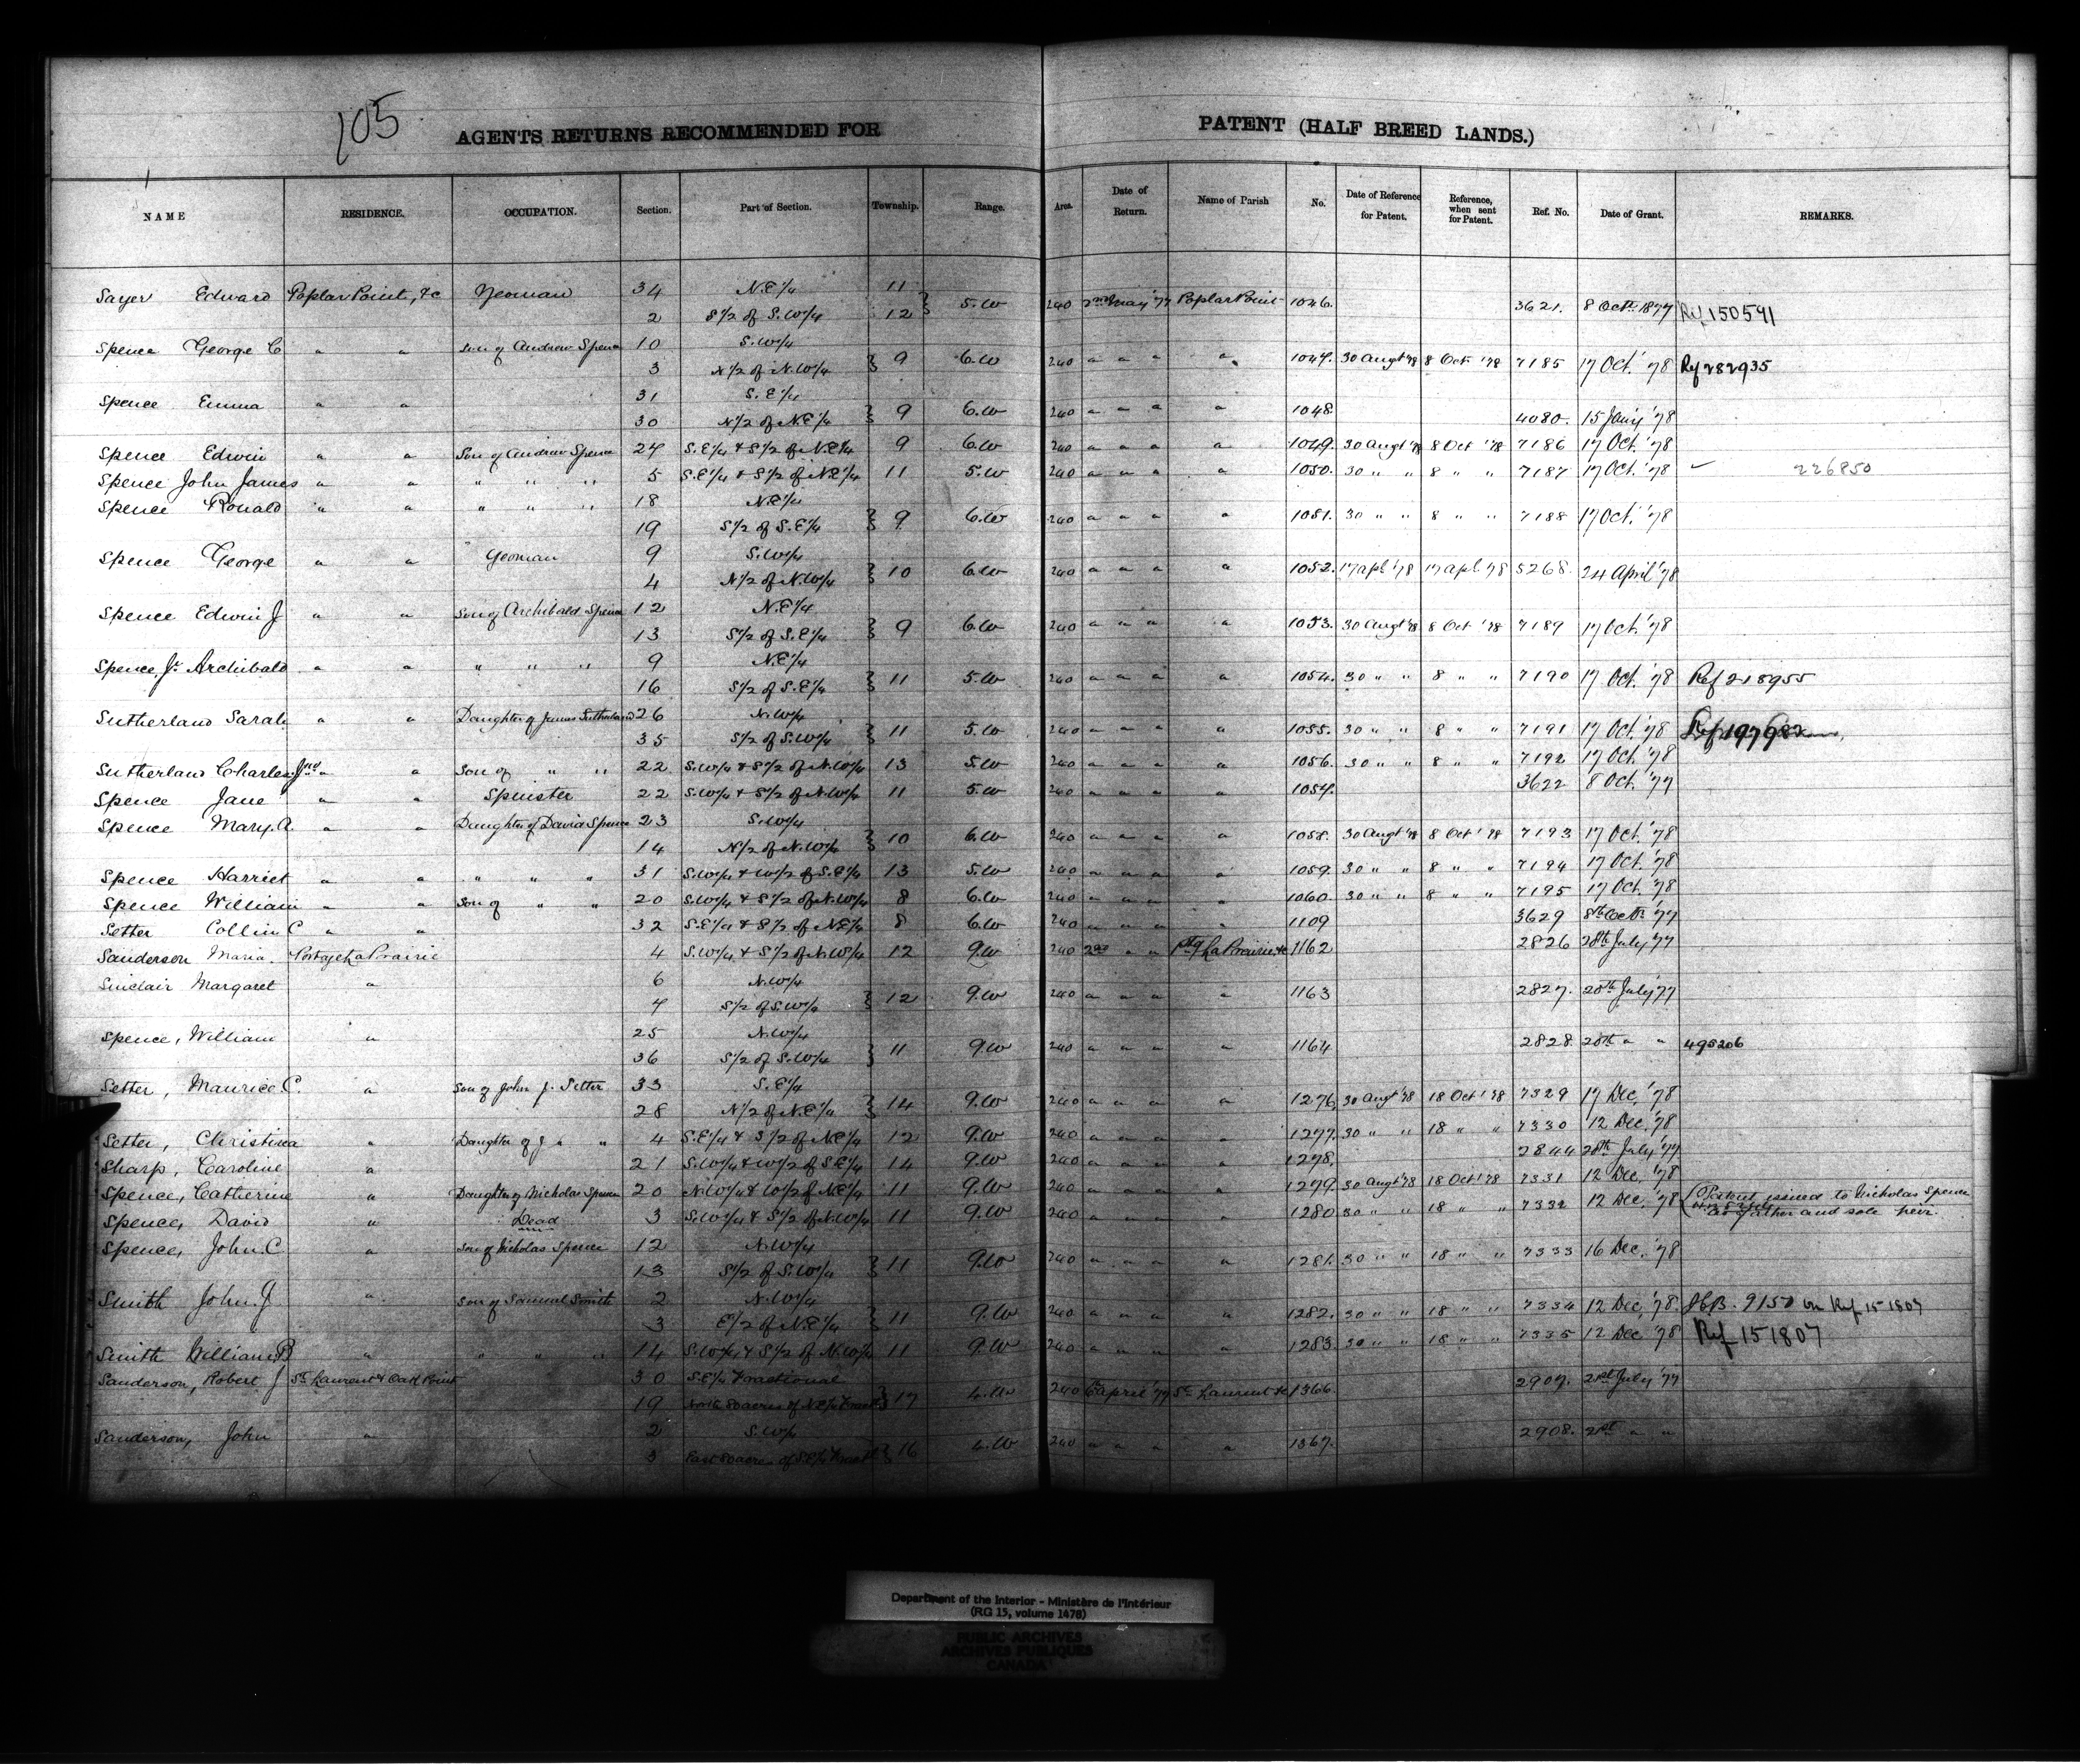 105
AGENTS RETURNS RECOMMENDED FOR PATENT (HALF BREED LANDS.)
NAME RESIDENCE. OCCUPATION. Section. Part of Section. Township. Range. Area. Date of Return. Name of Parish No. Date of Reference for Patent. Reference, when sent for Patent. Ref. No. Date of Grant. REMARKS.
Sayer Edward Poplar Point, &c Yeoman 34 N.E 1/4 11 } 5.W 240 2nd May '77 Poplar Point 1046. 3621. 8 Octr. 1877 Ref 150591
2 S 1/2 of S.W 1/4 12
Spence George C " " Son of Andrew Spence 10 S.W 1/4 } 9 6.W 240 " " " " 1047. 30 Augt '78 8 Oct '78 7185 17 Oct. '78 Ref 282935
3 N 1/2 of N.W 1/4
Spence Emma " " 31 S.E 1/4 } 9 6.W 240 " " " " 1048. 4080. 15 Jany '78
30 N 1/2 of N.E 1/4
Spence Edwin " " Son of Andrew Spence 24 S.E 1/4 & S 1/2 of N.E 1/4 9 6.W 240 " " " " 1049. 30 Augt '78 8 Oct '78 7186 17 Oct. '78
Spence John James " " " " " 5 S.E 1/4 & S 1/2 of N.E 1/4 11 5.W 240 " " " " 1050. 30 " " 8 " " 7187 17 Oct. '78 226850
Spence Ronald " " " " " 18 N.E 1/4 } 9 6.W 240 " " " " 1051. 30 " " 8 " " 7188 17 Oct. '78
19 S 1/2 of S.E 1/4
Spence George " " Yeoman 9 S.W 1/4 } 10 6.W 240 " " " " 1052. 17 apl '78 17 apl '78 5268. 24 April '78
4 N 1/2 of N.W 1/4
Spence Edwin J " " Son of Archibald Spence 12 N.E 1/4 } 9 6.W 240 " " " " 1053. 30 Augt '78 8 Oct '78 7189 17 Oct. '78
13 S 1/2 of S.E 1/4
Spence, Jr. Archibald " " " " " 9 N.E 1/4 } 11 5.W 240 " " " " 1054. 30 " " 8 " " 7190 17 Oct. '78 Ref 218955
16 S 1/2 of S.E 1/4
Sutherland Sarah " " Daughter of James Sutherland 26 N.W 1/4 } 11 5.W 240 " " " " 1055. 30 " " 8 " " 7191 17 Oct. '78 Ref 197982
35 S 1/2 of S.W 1/4
Sutherland Charles " " Son of " " 22 S.W 1/4 & S 1/2 of N.W 1/4 13 5.W 240 " " " " 1056. 30 " " 8 " " 7192 17 Oct. '78
Spence Jane " " Spinster 22 S.W 1/4 & S 1/2 of N.W 1/4 11 5.W 240 " " " " 1057. 3622 8 Oct. '77
Spence Mary. A. " " Daughter of David Spence 23 S.W 1/4 } 10 6.W 240 " " " " 1058. 30 Augt '78 8 Oct '78 7193 17 Oct. '78
14 N 1/2 of N.W 1/4
Spence Harriet " " " " " 31 S.W 1/4 & W 1/2 of S.E 1/4 13 5.W 240 " " " " 1059. 30 " " 8 " " 7194 17 Oct. '78
Spence William " " Son of " " 20 S.W 1/4 & S 1/2 of N.W 1/4 8 6.W 240 " " " " 1060. 30 " " 8 " " 7195 17 Oct. '78
Setter Collin C " " 32 S.E 1/4 & S 1/2 of N.E 1/4 8 6.W 240 " " " " 1109 3629 8th Octr '77
Sanderson Maria. Portage La Prairie 4 S.W 1/4 & S 1/2 of N.W 1/4 12 9.W 240 2nd " " Ptg La Prairie &c 1162 2826 28th July '77
Sinclair Margaret " 6 N.W 1/4 } 12 9.W 240 " " " " 1163 2827. 28th July '77
7 S 1/2 of S.W 1/4
Spence, William " 25 N.W 1/4 } 11 9.W 240 " " " " 1164 2828. 28th " " 495206
36 S 1/2 of S.W 1/4
Setter, Maurice C. " Son of John J. Setter 33 S.E 1/4 } 14 9.W 240 " " " " 1276. 30 Augt '78 18 Oct '78 7329 17 Dec. '78
28 N 1/2 of N.E 1/4
Setter, Christina " Daughter of J " " 4 S.E 1/4 & S 1/2 of N.E 1/4 12 9.W 240 " " " " 1277. 30 " " 18 " " 7330 12 Dec. '78
Sharp, Caroline " 21 S.W 1/4 & W 1/2 of S.E 1/4 14 9.W 240 " " " " 1278. 2844 28th July '77
Spence, Catherine " Daughter of Nicholas Spence 20 N.W 1/4 & W 1/2 of N.E 1/4 11 9.W 240 " " " " 1279. 30 Augt '78 18 Oct '78 7331 12 Dec. '78
Spence, David " Dead 3 S.W 1/4 & S 1/2 of N.W 1/4 11 9.W 240 " " " " 1280 30 " " 18 " " 7332 12 Dec. '78 (Patent issued to Nicholas Spence
as father and sole heir.
Spence, John. C. " Son of Nicholas Spence 12 N.W 1/4 } 11 9.W 240 " " " " 1281. 30 " " 18 " " 7333 16 Dec. '78
13 S 1/2 of S.W 1/4
Smith John. J " Son of Samuel Smith 2 N.W 1/4 } 11 9.W 240 " " " " 1282. 30 " " 18 " " 7334 12 Dec. '78. 9150 on Ref 151807
3 E 1/2 of N.E 1/4
Smith William B " " " " 14 S.W 1/4 & S 1/2 of N.W 1/4 11 9.W 240 " " " " 1283. 30 " " 18 " " 7335 12 Dec. '78 Ref 151807
Sanderson, Robert J St. Laurent & Oak Point 30 S.E 1/4 Fractional } 17 4.W 240 6th april '77 St. Laurent &c 1366. 2907. 21st July '77
19 North 80 acres of N.E 1/4 Fract
Sanderson, John " 2 S.W 1/4 } 16 4.W 240 " " " " 1367. 2908. 21st " "
3 East 80 acres of S.E 1/4 Fract
Department of the Interior - Ministère de l'Intérieur
(RG 15, volume 1478)
PUBLIC ARCHIVES
ARCHIVES PUBLIQUES
CANADA